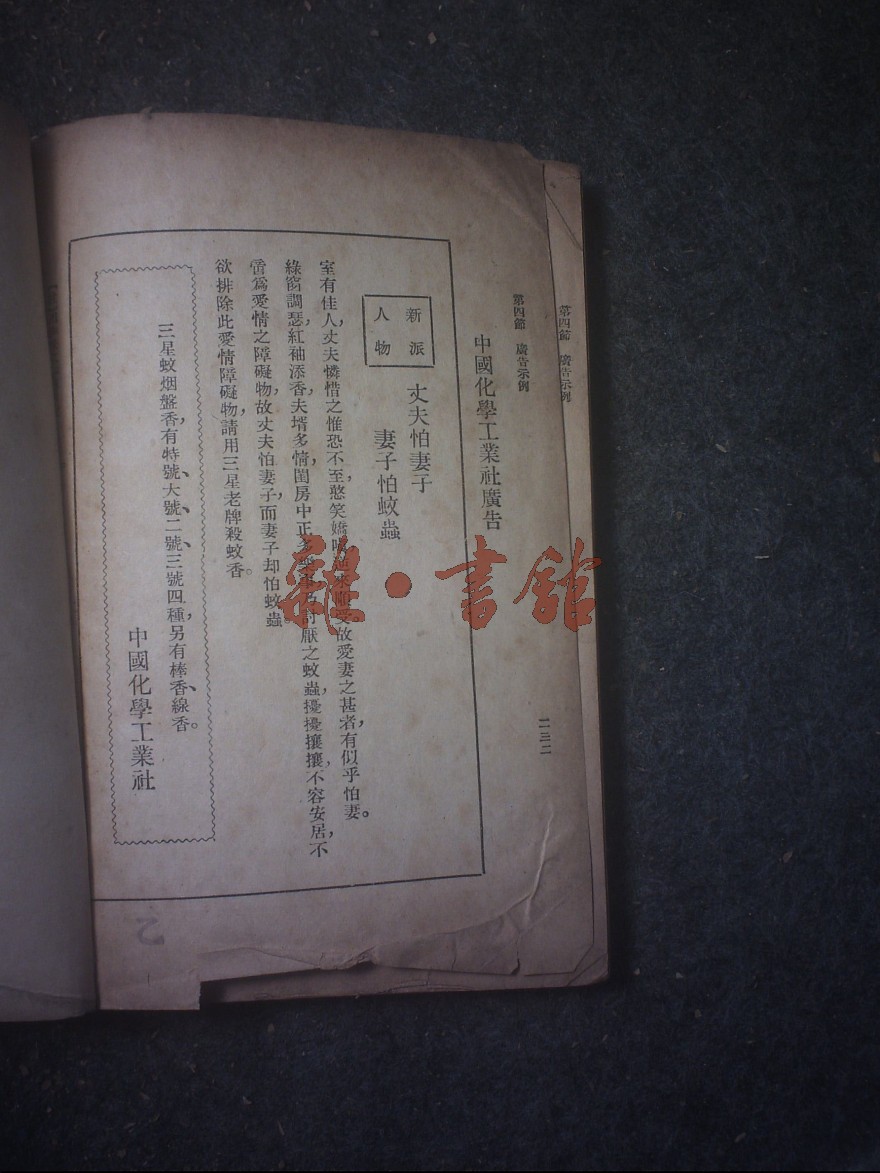 第四節　廣告示例
第四節　廣告示例
一三二
中國化學工業社廣告
新派
人物
丈夫怕妻子
妻子怕蚊蟲
室有佳人，丈夫憐惜之惟恐不至，憨笑嬌嗔，逆來順受。故愛妻之甚者，有似乎怕妻。
綠窗調瑟，紅袖添香，夫壻多情，閨房中正多 討厭之蚊蟲，擾擾攘攘，不容安居，不
啻爲愛情之障礙物，故丈夫怕妻子，而妻子却怕蚊蟲。
欲排除此愛情障礙物，請用三星老牌殺蚊香。
三星蚊烟盤香，有特號、大號、二號、三號四種，另有棒香、線香。
中國化學工業社
雜·書館